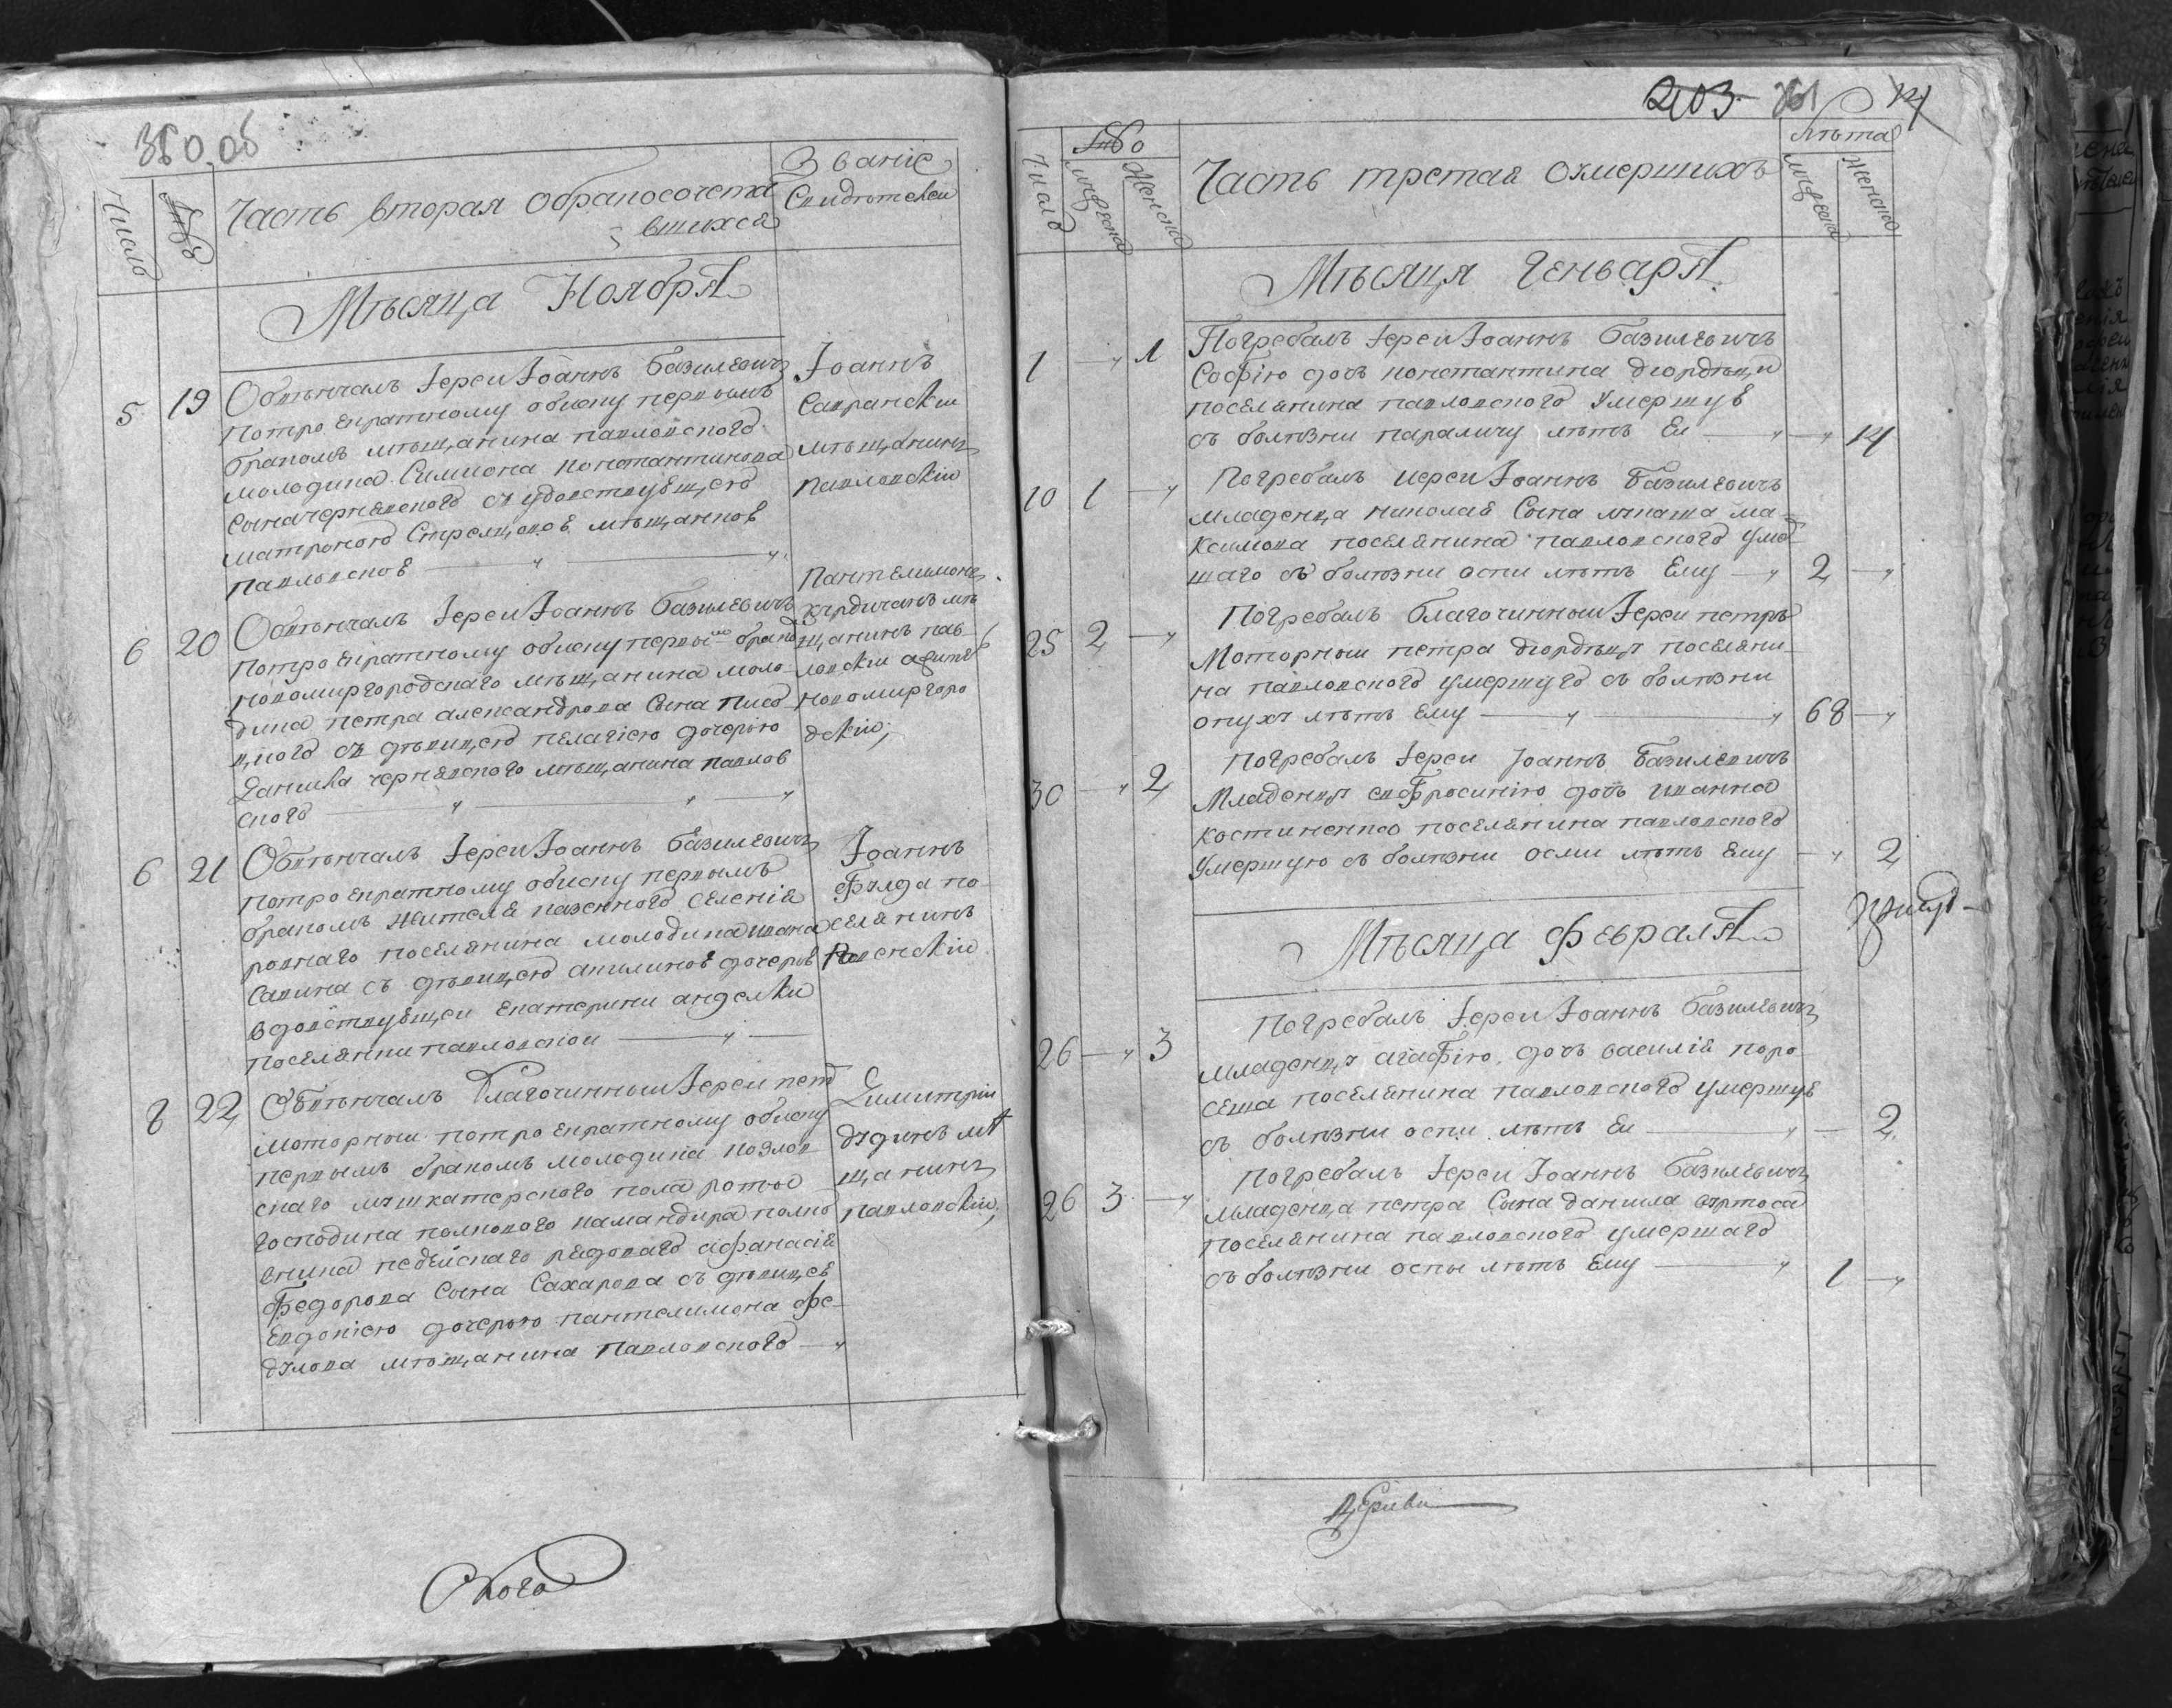 360 об
Число
№
Часть вторая обракосочета
вшихся
Званіе
Свидѣтелеи
Мѣсяца Ноября
5 19 Обвѣнчалъ Іереи Іоаннъ Базилевичъ
потроекратному обиску первымъ
бракомъ мѣщанина павловского
молодика Симиона Константинова
сына чернявского
Матроною мѣщанков
павловскоѣ
Іоаннъ
Савранскіи
мѣщанинъ
павловскіи
6 20 Обвѣнчалъ Іереи Іоаннъ Базилевичъ
потроекратному обиску первымъ бракомъ
новомиргородскаго мѣщанина моло
дика петра александрова сына
съ дѣвицею пелагіею дочерью
Данила чернявского мѣщанина павлов
ского
пантелимонъ
мѣ
щанинъ пав
ловскіи
новомиргоро
дскіи
6 21 Обвѣнчалъ Іереи Іоаннъ Базилевичъ
потроекратному обиску первымъ
бракомъ жителя казенного селенія
ровнаго поселянина молодика ивана
савина съ дѣвицею акилиноѣ дочерѣ
вдовствуѣщеи екатерини
поселянки павловскои
Іоаннъ
по
селянинъ
8 22 Обвѣнчалъ Благочинныи Іереи петр
моторныи потроекратному обиску
первымъ бракомъ молодика козлов
скаго мушкатерского полка роты
господина полкового камандира полко
вника рядоваго афанасія
Федорова сына Сахарова съ дѣвицеѣ
Евдокіею дочерью пантелимона
мѣщанина павловского
Димитріи
мѣ
щанинъ
павловскіи
203 361 14
Число
№
мужеска
женска
Часть третая оумершихъ
лѣта
мужеска
женска
Мѣсяця Генваря
1 1 Погребалъ Іереи Іоаннъ Базилевичъ
Софію дочъ константина
поселянина павловского умершуѣ
съ болѣзни параличу лѣтъ Еи 14
10 1 Погребалъ иереи Іоаннъ Базилевичъ
младенца николая сына игната ма
ксимова поселянина павловского умер
шаго съ болѣзни оспи лѣтъ Ему 2
25 2 Погребалъ благочинныи Іереи петръ
Моторныи петра поселяни
на павловского умершуго съ болѣзни
опухъ лѣтъ Ему 68
30 2 Погребалъ Іереи Іоаннъ Базилевичъ
Младенця евфросинію дочъ иванна
костиненко поселянина павловского
умершую съ болѣзни осми лѣтъ Ему 2
Мѣсяца Февраля
26 3 Погребалъ Іереи Іоаннъ Базилевичъ
младенця агафію дочъ василія поро
сеша поселянина павловского умершуѣ
съ болѣзни оспи лѣтъ Еи 2
26 3 Погребалъ Іереи Іоаннъ Базилевичъ
младенца петра сына данила
поселянина павловского умершаго
съ болѣзни оспы лѣтъ Ему 1